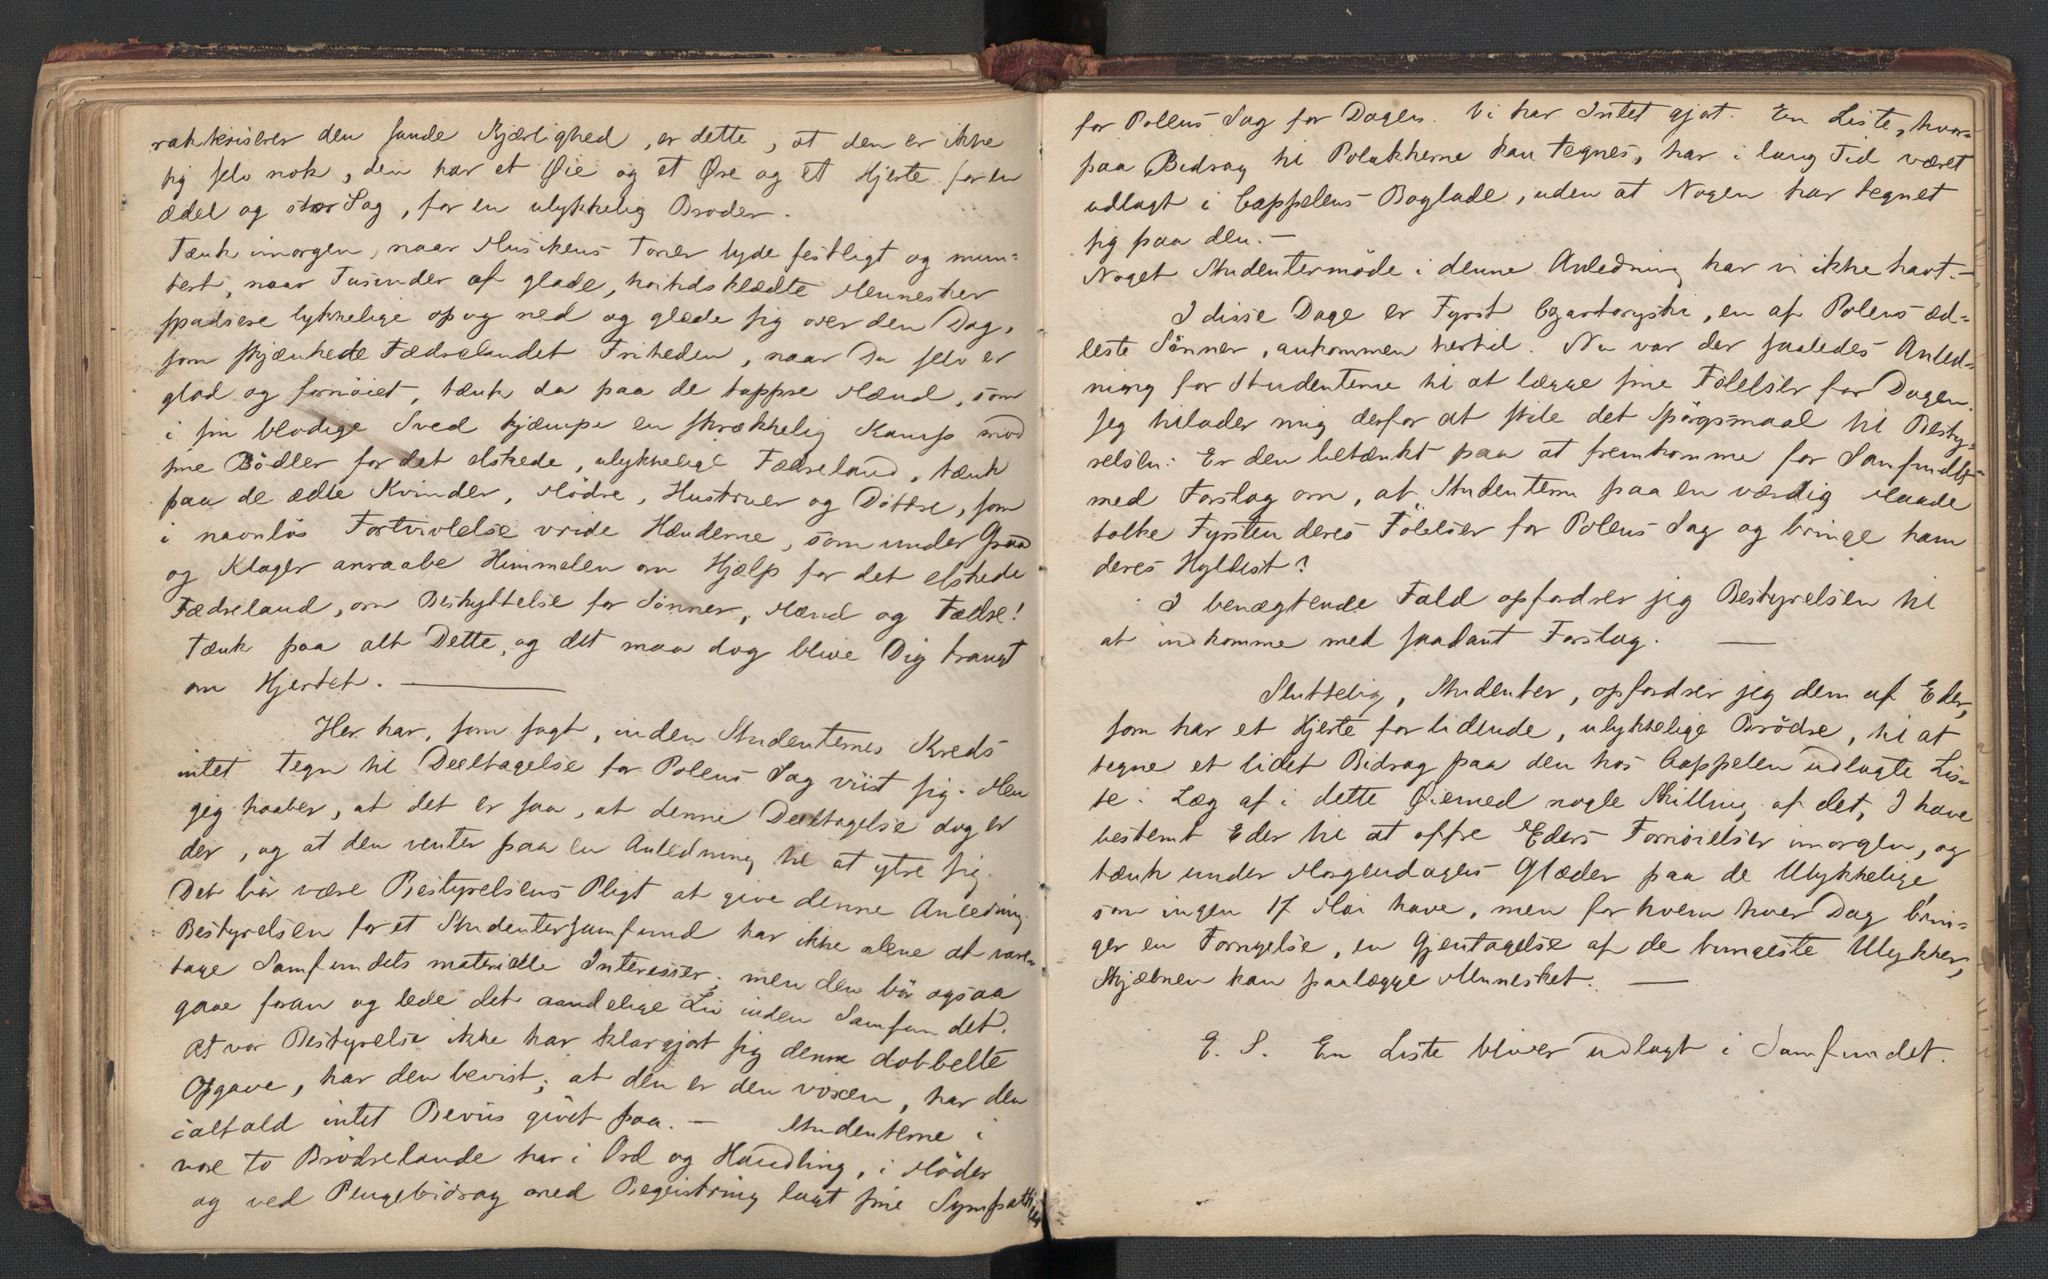 rakteriserer den sande Kjærlighed, er dette, at den er ikke
sig selv nok, den har et Øie og et Øre og et Hjerte for en
ædel og stor Sag, for en ulykkelig Broder.
Tænk imorgen, naar Musikens Toner lyde festligt og mun-
tert, naar Tusinder af glade, høitidsklædte Mennesker
spadsere lykkelige op og ned og glæde sig over den Dag,
som skjænkede Fædrelandet Friheden, naar Du selv er
glad og fornøiet, tænk da paa de tappre Mænd, som
i sin blodige Sved kjæmpe en skrækkelig Kamp mod
sine Bødler for det elskede, ulykkelige Fædreland, tænk
paa de ædle Kvinder, Mødre, Hustruer og Døttre, som
i navnløs Fortvivlelse vride Hænderne, som under Graad
og Klager anraabe Himmelen om Hjælp for det elskede
Fædreland, om Beskyttelse for Sønner, Mænd og Fædre!
Tænk paa alt Dette, og det maa dog blive Dig trangt
om Hjertet. —
Her har, som sagt, inden Studenternes Kreds
intet Tegn til Deeltagelse for Polens Sag viist sig. Men
jeg haaber, at det er saa, at denne Deeltagelse dog er
der, og at den venter paa en Anledning til at ytre sig.
Det bør være Bestyrelsens Pligt at give denne Anledning.
Bestyrelsen for et Studentersamfund har ikke alene at vare-
tage Samfundets materielle Interesser; men den bør ogsaa
gaae foran og lede det aandelige Liv inden Samfundet.
At vor Bestyrelse ikke har klargjort sig denne dobbelte
Opgave, har den bevist; at den er den voxen, har den
ialfald intet Beviis givet paa. — Studenterne i
vore to Brødrelande har i Ord og Handling, i Møder
og ved Pengebidrag med Begeistring lagt sine Sympathier
for Polens Sag for Dagen. Vi har Intet gjort. En Liste, hvor-
paa Bidrag til Polakkerne kan tegnes, har i lang Tid været
udlagt i Cappelens Boglade, uden at Nogen har tegnet
sig paa den. —
Noget Studentermøde i denne Anledning har vi ikke havt. —
I disse Dage er Fyrst Czartoryski, en af Polens æd-
leste Sønner, ankommen hertil. Nu var der saaledes Anled-
ning for Studenterne til at lægge sine Følelser for Dagen.
Jeg tillader mig derfor at stile det Spørgsmaal til Besty-
relsen: Er den betænkt paa at fremkomme for Samfundet
med Forslag om, at Studenterne paa en værdig Maade
tolke Fyrsten deres Følelser for Polens Sag og bringe ham
deres Hyldest?
I benægtende Fald opfordrer jeg Bestyrelsen til
at indkomme med saadant Forslag. —
Sluttelig, Studenter, opfordrer jeg dem af Eder,
som har et Hjerte for lidende, ulykkelige Brødre, til at
tegne et lidet Bidrag paa den hos Cappelen udlagte Lis-
te. Læg af i dette Øiemed nogle Skilling af det, I have
bestemt Eder til at offre Eders Fornøielser imorgen, og
tænk under Morgendagens Glæder paa de Ulykkelige
som ingen 17 Mai have, men for hvem hver Dag brin-
ger en Fornyelse, en Gjentagelse af de tungeste Ulykker,
Skjæbnen kan paalægge Mennesket. —
E. S. En Liste bliver udlagt i Samfundet.